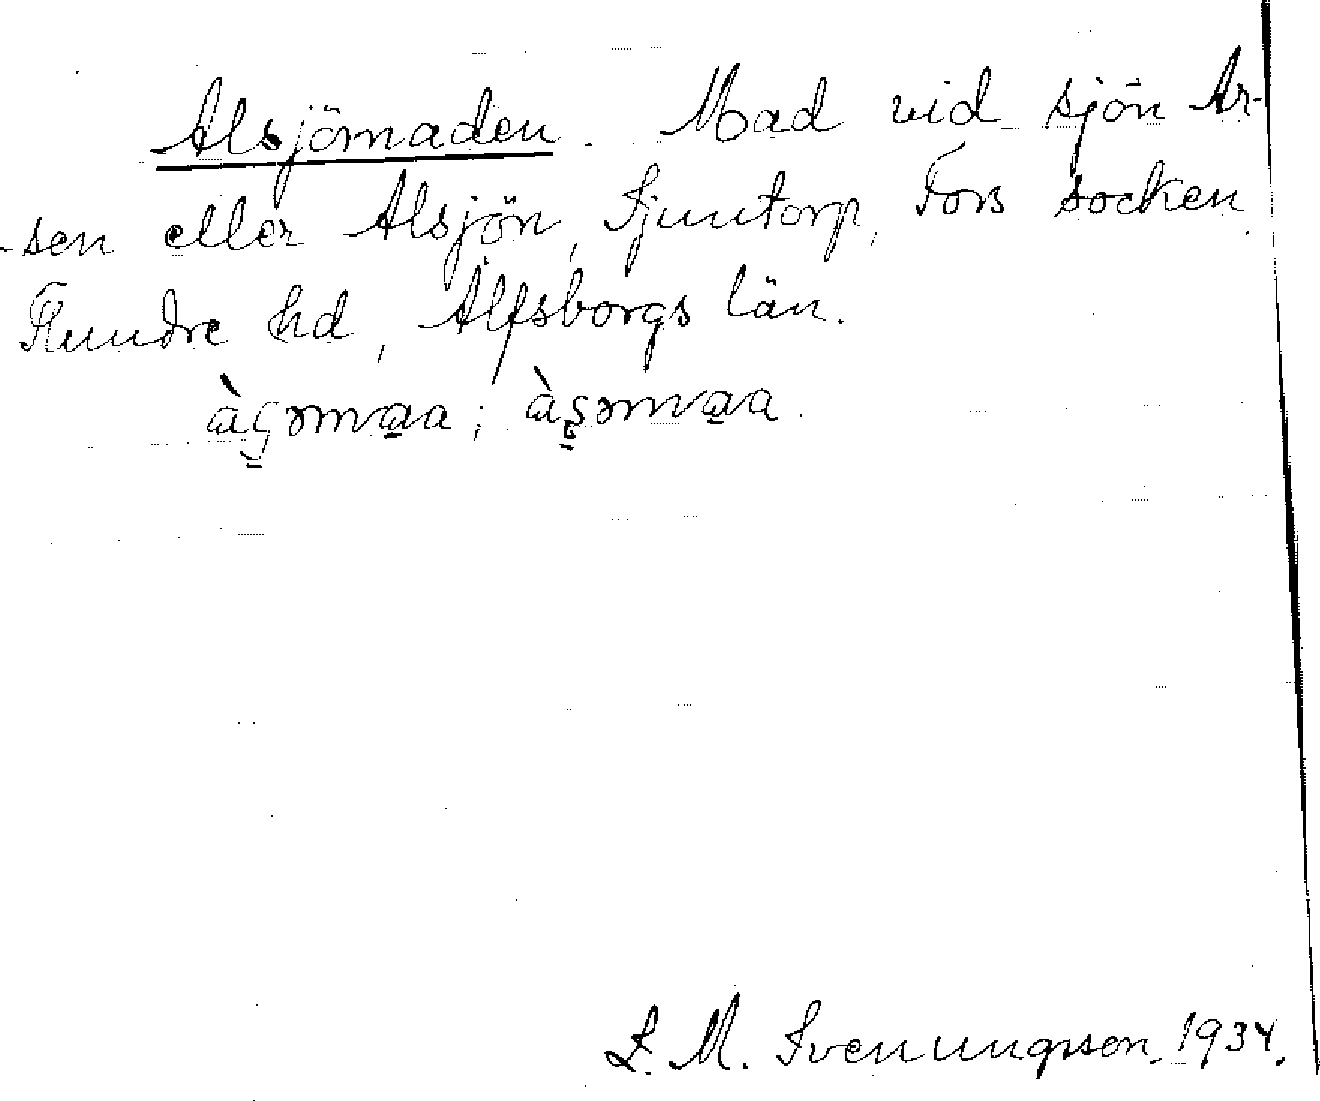 Alsjömaden. Mad vid sjön Ar-
-sen eller Alsjön, Sjuntorp, Fors socken
Flundre hd, Älfsborgs län.
àşəmaa; àşəmaa.
L. M. Svenungsson. 1934.